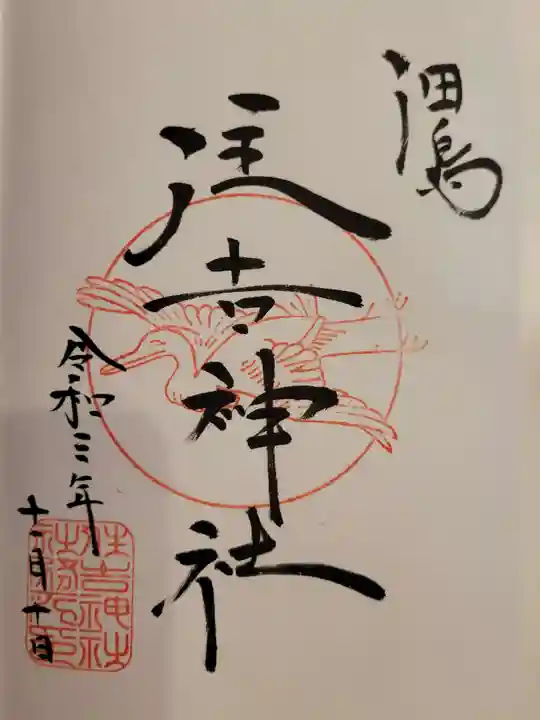 住吉神社
令和三年
十一月十日
住吉神社
社務所印